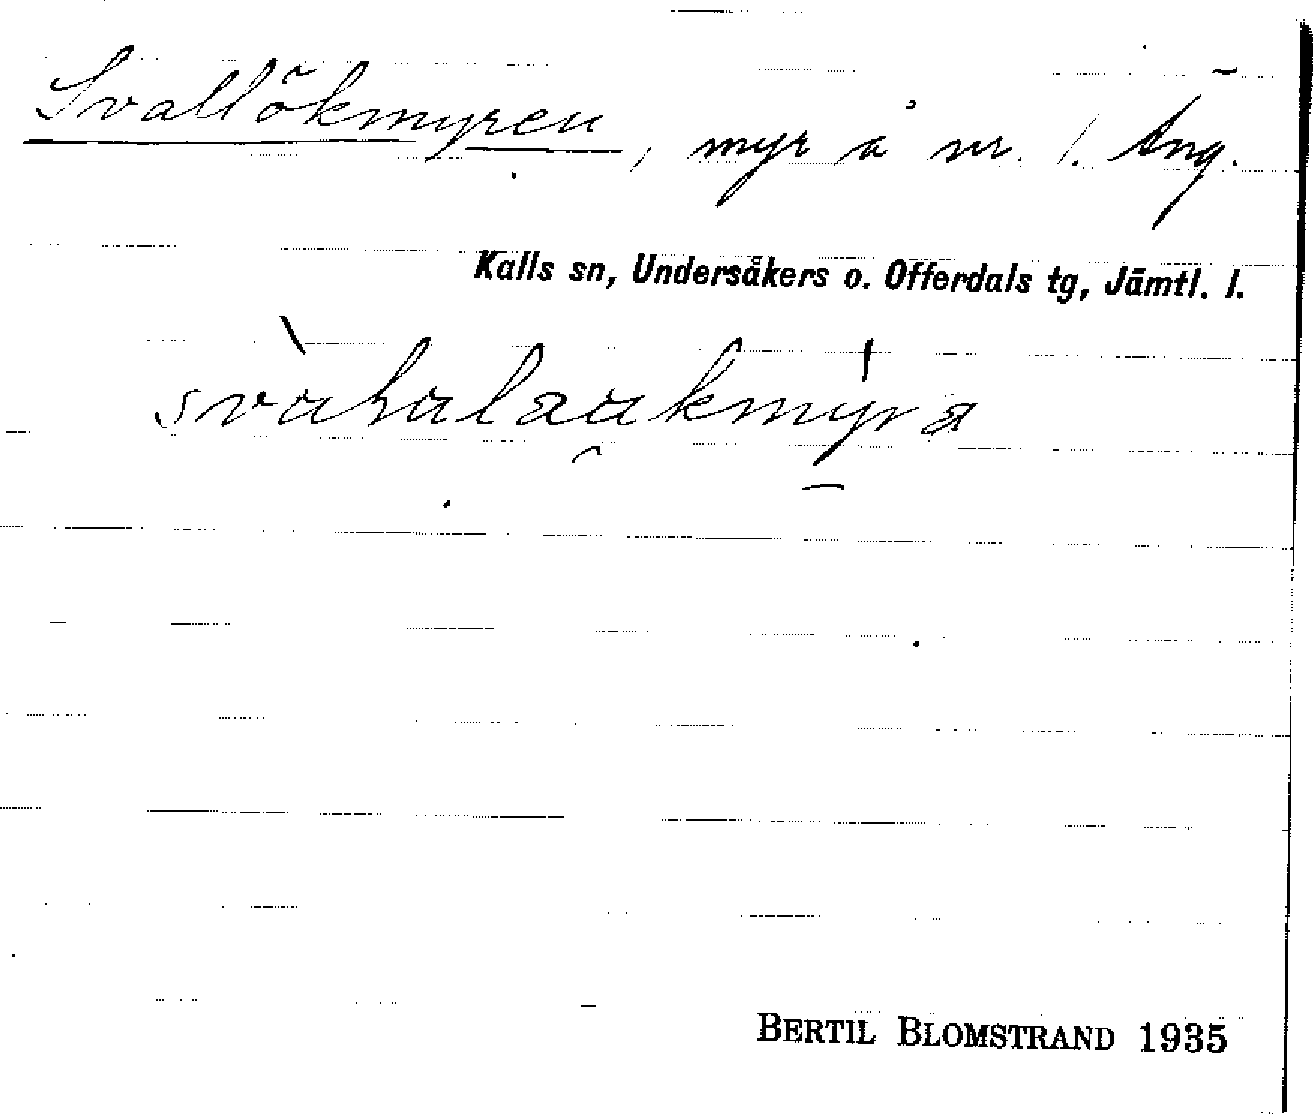 Svallökmyren, myr å nr. 1. Äng.
Kalls sn, Undersåkers o. Offerdals tg, Jämtl. l.
svàhalaukmy̱ra
BERTIL BLOMSTRAND 1935